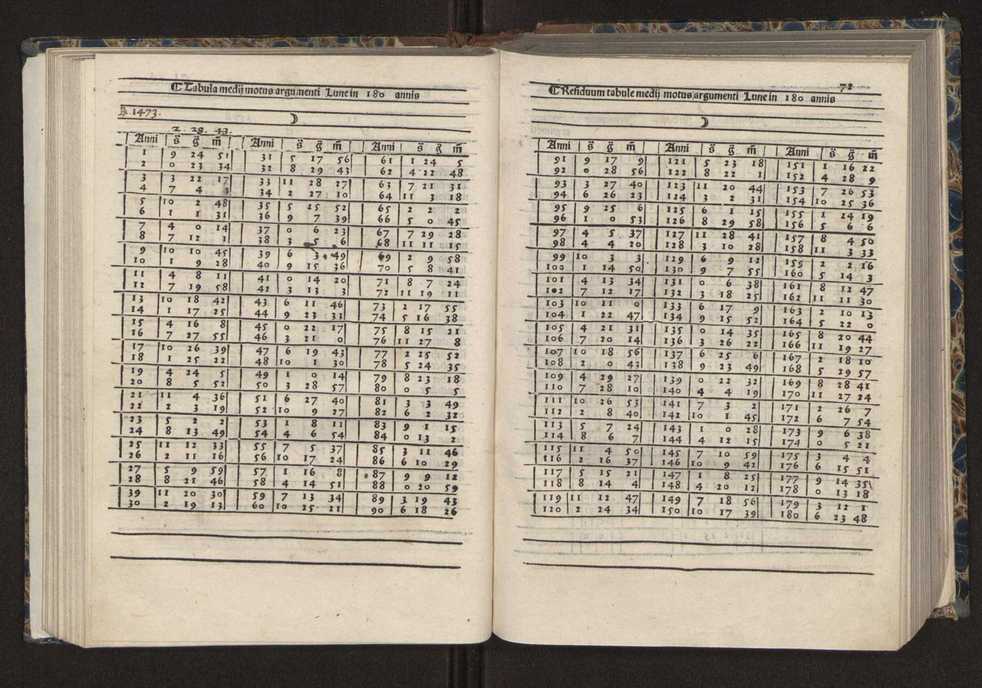 Tabula medij motus argumenti Lune in 180 annis
Ra. 1473.
☽
2. 28. 43.
Anni | s̄ | ḡ | m̄ | Anni | s̄ | ḡ | m̄ | Anni | s̄ | ḡ | m̄
1 9 24 51 | 31 5 17 56 | 61 1 24 5
2 0 23 34 | 32 8 29 43 | 62 4 22 48
3 3 22 17 | 33 11 28 27 | 63 7 21 31
4 7 4 3 | 34 2 27 10 | 64 11 3 18
5 10 2 48 | 35 5 25 52 | 65 2 2 2
6 1 1 31 | 36 9 7 39 | 66 5 0 45
7 4 0 14 | 37 0 6 23 | 67 7 29 28
8 7 12 1 | 38 3 5 6 | 68 11 11 15
9 10 10 45 | 39 6 3 49 | 69 2 9 58
10 1 9 28 | 40 9 15 36 | 70 5 8 41
11 4 8 11 | 41 0 14 20 | 71 8 7 24
12 7 19 58 | 42 3 13 3 | 72 11 19 11
13 10 18 42 | 43 6 11 46 | 73 2 17 55
14 1 17 25 | 44 9 23 31 | 74 5 16 38
15 4 16 8 | 45 0 22 17 | 75 8 15 21
16 7 27 55 | 46 3 21 0 | 76 11 27 8
17 10 26 39 | 47 6 19 43 | 77 2 25 52
18 1 25 22 | 48 10 1 30 | 78 5 24 35
19 4 24 5 | 49 1 0 14 | 79 8 23 18
20 8 5 52 | 50 3 28 57 | 80 0 5 5
21 11 4 36 | 51 6 27 40 | 81 3 3 49
22 2 3 19 | 52 10 9 27 | 82 6 2 32
23 5 2 2 | 53 1 8 11 | 83 9 1 15
24 8 13 49 | 54 4 6 54 | 84 0 13 2
25 11 12 33 | 55 7 5 37 | 85 3 11 46
26 2 11 16 | 56 10 17 24 | 86 6 10 29
27 5 9 59 | 57 1 16 8 | 87 9 9 12
28 8 21 46 | 58 4 14 51 | 88 0 20 59
29 11 20 30 | 59 7 13 34 | 89 3 19 43
30 2 19 13 | 60 10 25 21 | 90 6 18 26
72
Residuum tabule medij motus argumenti Lune in 180 annis
☽
Anni | s̄ | ḡ | m̄ | Anni | s̄ | ḡ | m̄ | Anni | s̄ | ḡ | m̄
91 9 17 9 | 121 5 23 18 | 151 1 16 22
92 0 28 56 | 122 8 22 1 | 152 4 28 9
93 3 27 40 | 123 11 20 44 | 153 7 26 53
94 6 26 23 | 124 3 2 31 | 154 10 25 36
95 9 25 6 | 125 6 1 15 | 155 1 24 19
96 1 0 53 | 126 8 29 58 | 156 5 6 6
97 4 5 37 | 127 11 28 41 | 157 8 4 50
98 4 4 20 | 128 3 10 28 | 158 11 3 33
99 10 3 3 | 129 6 9 12 | 155 2 2 16
100 1 14 50 | 130 9 7 55 | 160 5 14 3
101 4 13 34 | 131 0 6 38 | 161 8 12 47
102 7 12 17 | 132 3 18 25 | 162 11 11 30
103 10 11 0 | 133 6 17 9 | 163 2 10 13
104 1 22 47 | 134 9 15 52 | 164 5 22 0
105 4 21 31 | 135 0 14 35 | 165 8 20 44
106 7 20 14 | 136 3 26 22 | 166 11 19 27
107 10 18 56 | 137 6 25 6 | 167 2 18 10
108 2 0 43 | 138 9 23 49 | 168 5 29 57
109 4 29 27 | 139 0 22 32 | 169 8 28 41
110 7 28 10 | 140 4 4 19 | 170 11 27 24
111 10 26 53 | 141 7 3 2 | 171 2 26 7
112 2 8 40 | 142 10 1 45 | 172 6 7 54
113 5 7 24 | 143 1 0 28 | 173 9 6 38
114 8 6 7 | 144 4 12 15 | 174 0 5 21
115 11 4 50 | 145 7 10 59 | 175 3 4 4
116 2 16 37 | 146 10 9 42 | 176 6 15 51
117 5 15 21 | 147 1 8 25 | 177 9 14 35
118 8 14 4 | 148 4 20 12 | 178 0 13 18
119 11 12 47 | 149 7 18 56 | 179 3 12 1
120 2 24 34 | 150 10 17 39 | 180 6 23 48